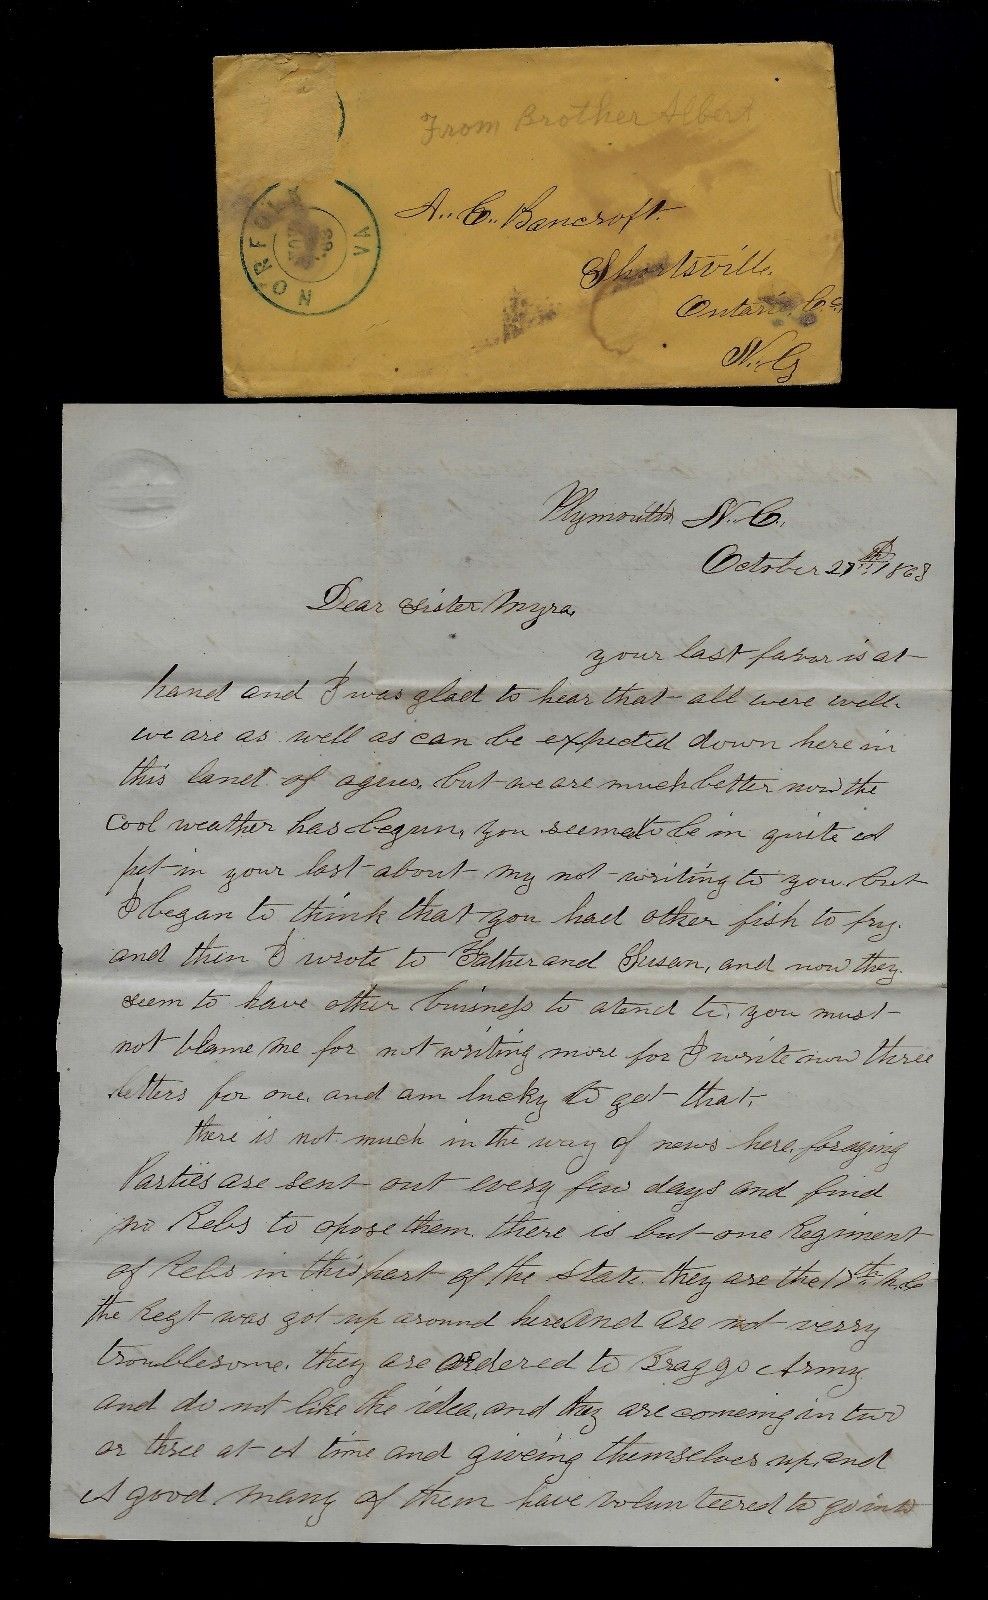 From Brother Albert
NORFOLK VA
NOV
63
A.. C.. Bancroft.
Shortsville.
Ontario. Co.
N.. Y
Plymouth N.. C.
October 27th 1863
Dear Sister Myra,
your last favor is at
hand and I was glad to hear that all were well.
we are as well as can be expected down here in
this land of agues, but we are much better now the
cool weather has begun, you seemed to be in quite a
pet in your last about my not writing to you. but
I began to think that you had other fish to fry.
and then I wrote to Father and Susan, and now they
seem to have other buisness to atend to. you must
not blame me for not writing more for I write now three
letters for one. and am lucky to get that.
there is not much in the way of news here. foraging
Parties are sent out every few days and find
no Rebs to opose them. there is but one Regiment
of Rebs in this part of the State. they are the N.C
the Regt was got up around here and are not verry
troublesome. they are ordered to Braggs Army
and do not like the idea, and they are comeing in two
or three at A time and giveing themselves up, and
A good many of them have volunteered to go into